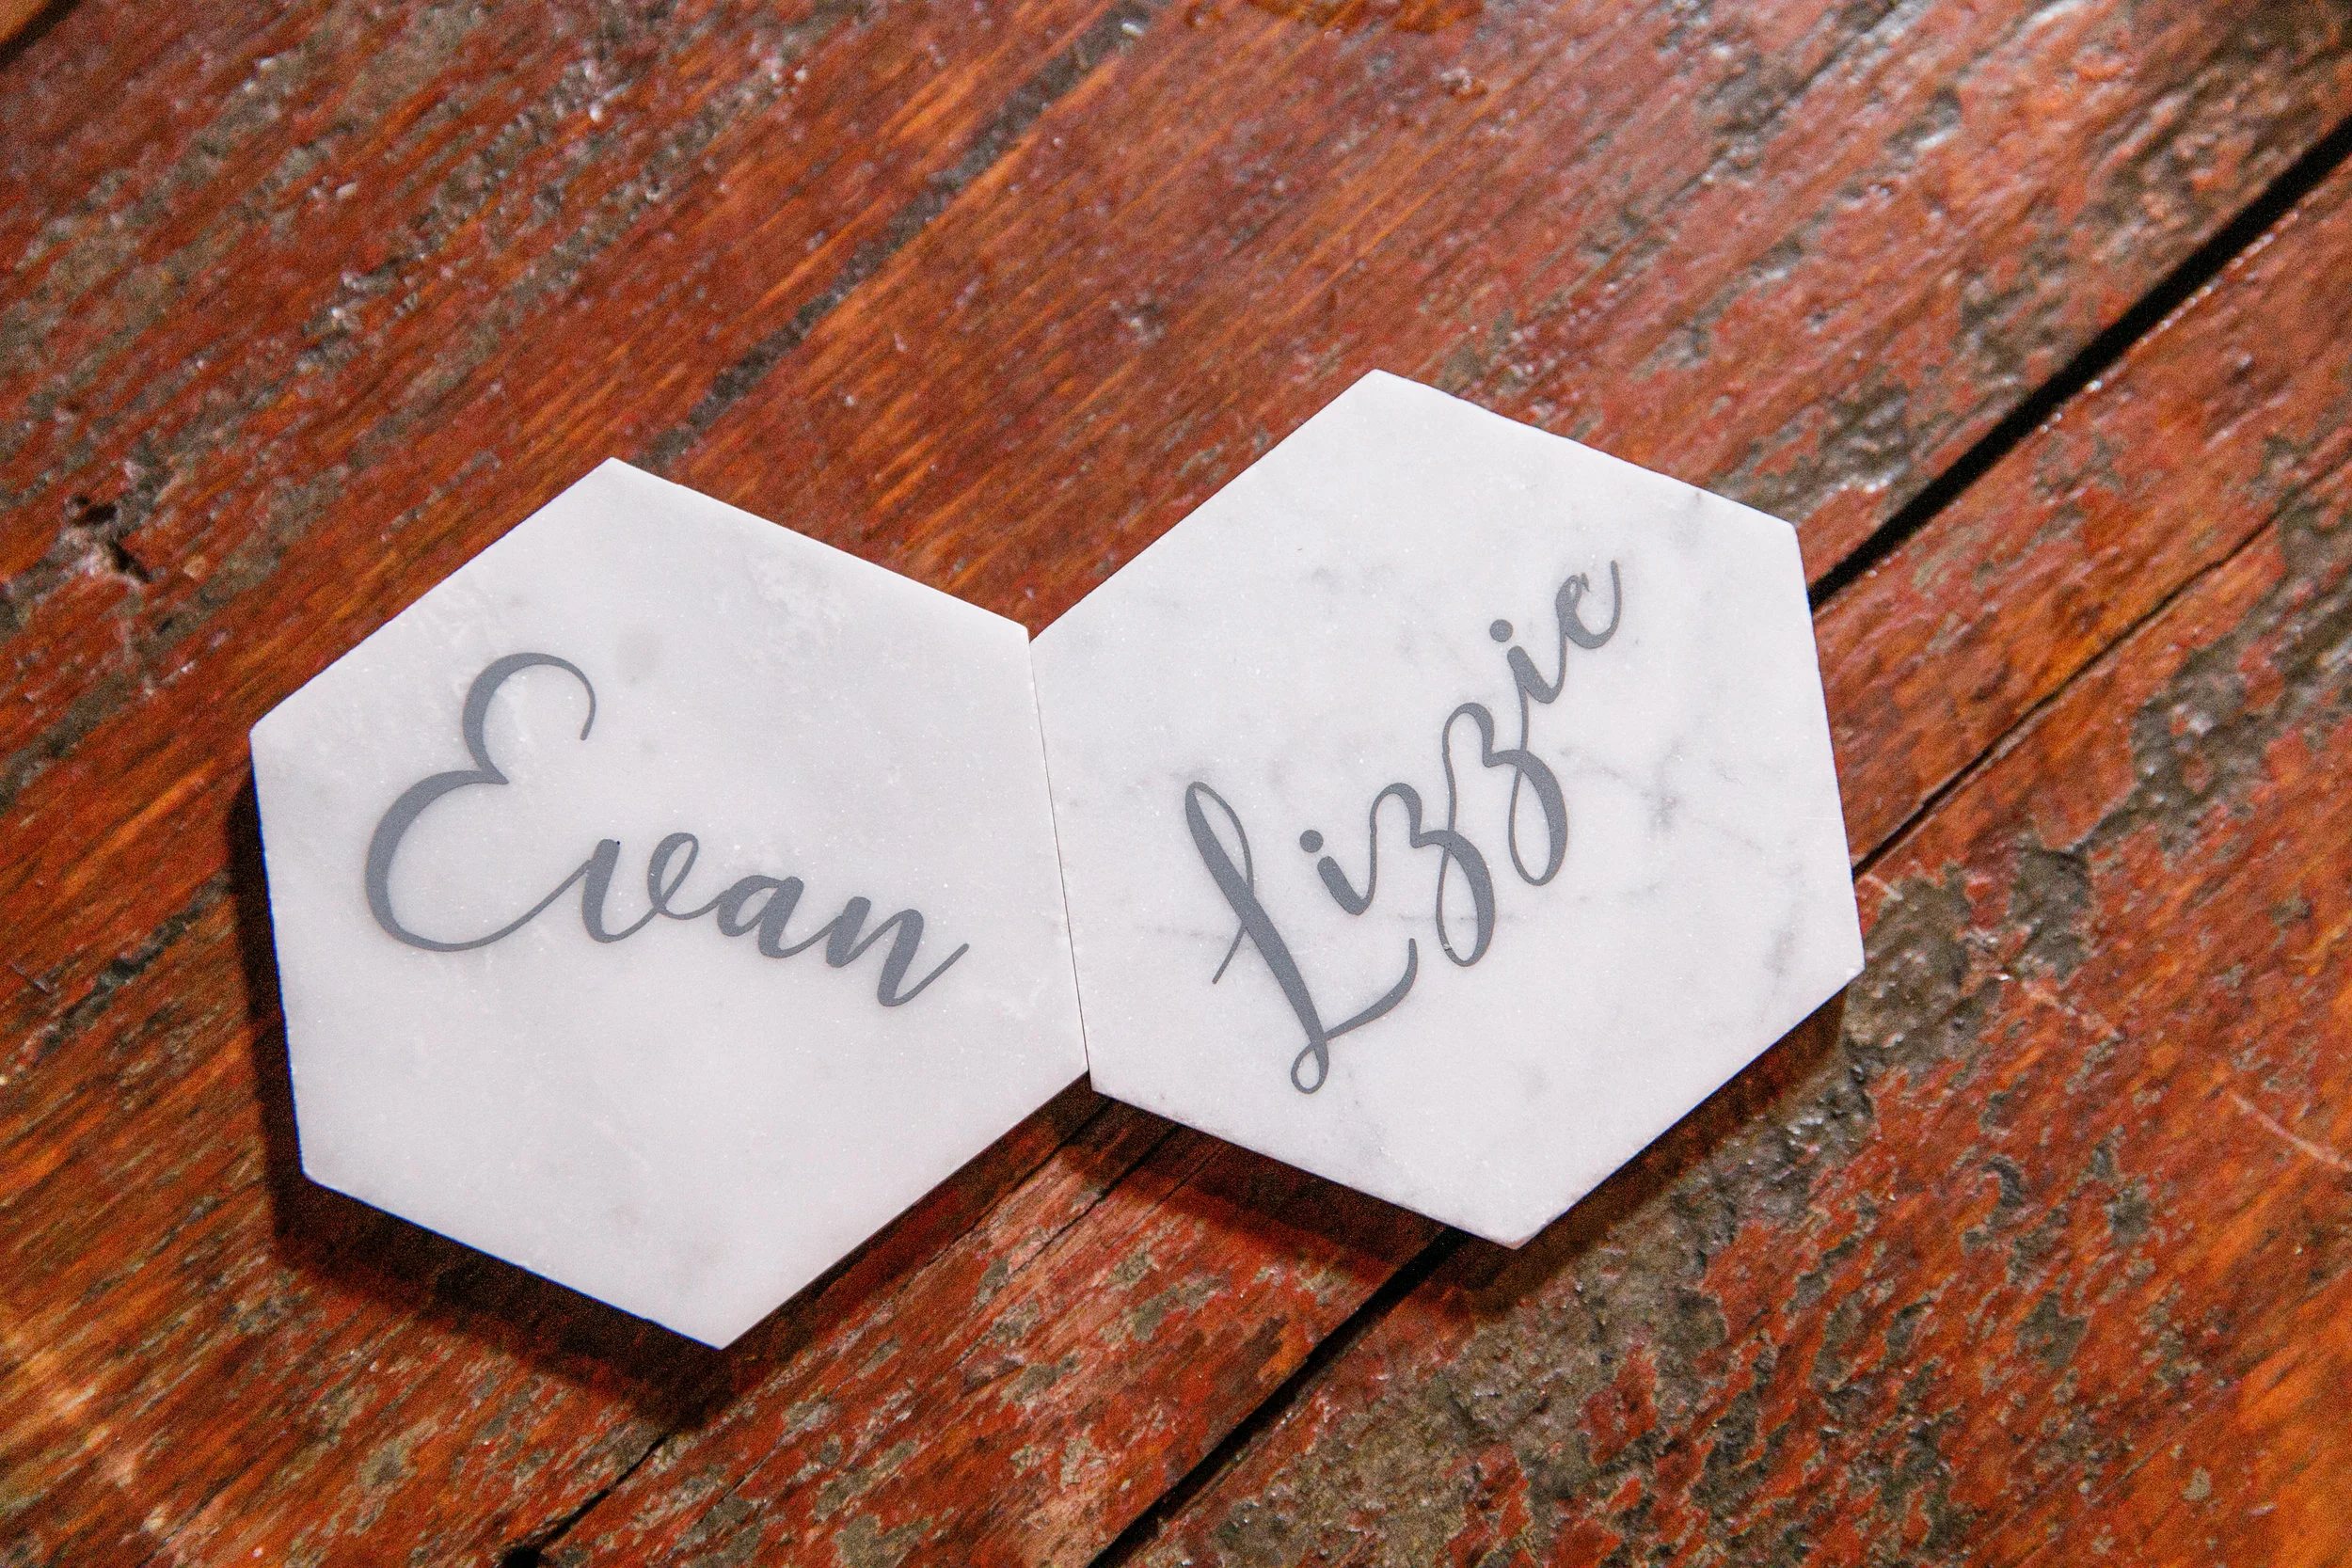 Evan
Lizzie